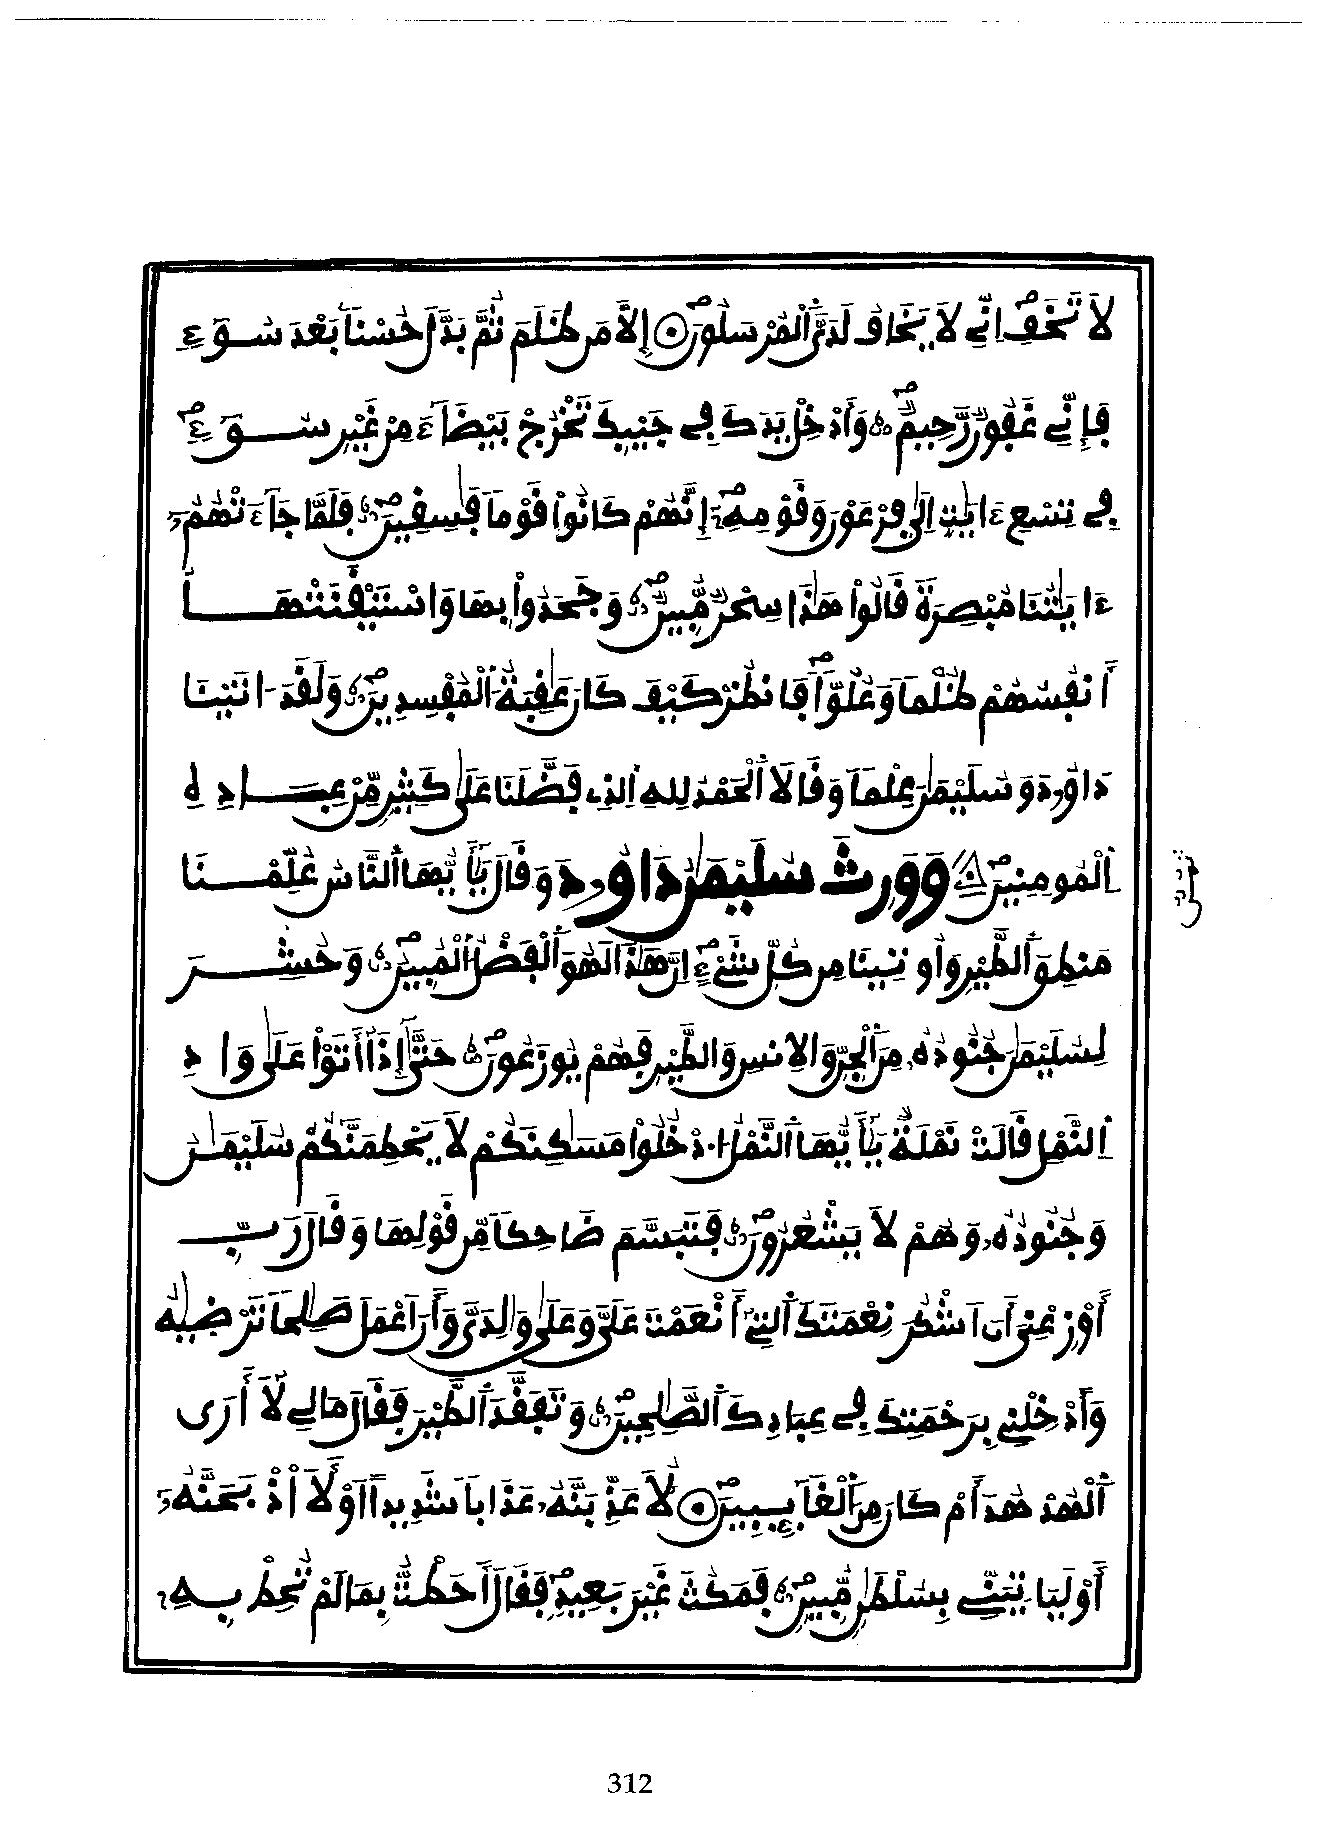 لَا تَخَفِ اِنِّي لَا يَخَافُ لَدَيَّ ٱلْمُرْسَلُونَ إِلَّا مَن ظَلَمَ ثُمَّ بَدَّلَ حُسْناً بَعْدَ سُوٓءٖ
فَإِنِّي غَفُورٞ رَّحِيمٞ وَأَدْخِلْ يَدَكَ فِي جَيْبِكَ تَخْرُجْ بَيْضَآءَ مِنْ غَيْرِ سُوٓءٖ
فِي تِسْعِ ءَايَٰتٍ اِلَىٰ فِرْعَوْنَ وَقَوْمِهِۦٓ إِنَّهُمْ كَانُواْ قَوْماً فَٰسِقِينَ فَلَمَّا جَآءَتْهُمُۥٓ
ءَايَٰتُنَا مُبْصِرَةٗ قَالُواْ هَٰذَا سِحْرٞ مُّبِينٞ وَجَحَدُواْ بِهَا وَاسْتَيْقَنَتْهَآ
أَنفُسُهُمْ ظُلْماً وَعُلُوّاٗ فَانظُرْ كَيْفَ كَانَ عَٰقِبَةُ ٱلْمُفْسِدِينَ وَلَقَدَ اٰتَيْنَا
دَاوُۥدَ وَسُلَيْمَٰنَ عِلْماً وَقَالَا ٱلْحَمْدُ لِلهِ ٱلذِے فَضَّلَنَا عَلَىٰ كَثِيرٖ مِّنْ عِبَادِهِ
ٱلْمُومِنِينَ وَوَرِثَ سُلَيْمَٰنُ دَاوُۥدَ وَقَالَ يَٰٓأَيُّهَا ٱلنَّاسُ عُلِّمْنَا
مَنطِقَ ٱلطَّيْرِ وَأُوتِينَا مِن كُلِّ شَےْءٍ اِنَّ هَٰذَا لَهُوَ ٱلْفَضْلُ ٱلْمُبِينُ وَحُشِرَ
لِسُلَيْمَٰنَ جُنُودُهُۥ مِنَ ٱلْجِنِّ وَالِانسِ وَالطَّيْرِ فَهُمْ يُوزَعُونَ حَتَّىٰٓ إِذَآ أَتَوْاْ عَلَىٰ وَادِ
ٱلنَّمْلِ قَالَتْ نَمْلَةٞ يَٰٓأَيُّهَا ٱلنَّمْلُ اُدْخُلُواْ مَسَٰكِنَكُمْ لَا يَحْطِمَنَّكُمْ سُلَيْمَٰنُ
وَجُنُودُهُۥ وَهُمْ لَا يَشْعُرُونَ فَتَبَسَّمَ ضَاحِكاٗ مِّن قَوْلِهَا وَقَالَ رَبِّ
أَوْزِعْنِيٓ أَنَ اَشْكُرَ نِعْمَتَكَ ٱلتِيٓ أَنْعَمْتَ عَلَيَّ وَعَلَىٰ وَٰلِدَيَّ وَأَنَ اَعْمَلَ صَٰلِحاٗ تَرْضَيٰهُ
وَأَدْخِلْنِي بِرَحْمَتِكَ فِي عِبَادِكَ ٱلصَّٰلِحِينَ وَتَفَقَّدَ ٱلطَّيْرَ فَقَالَ مَالِي لَآ أَرَى
ٱلْهُدْهُدَ أَمْ كَانَ مِنَ ٱلْغَآئِبِينَ لَأُعَذِّبَنَّهُۥ عَذَاباٗ شَدِيداً أَوْ لَأَاْذْبَحَنَّهُۥٓ
أَوْ لَيَاتِيَنِّي بِسُلْطَٰنٖ مُّبِينٖ فَمَكُثَ غَيْرَ بَعِيدٖ فَقَالَ أَحَطتُّ بِمَا لَمْ تُحِطْ بِهِۦ
312